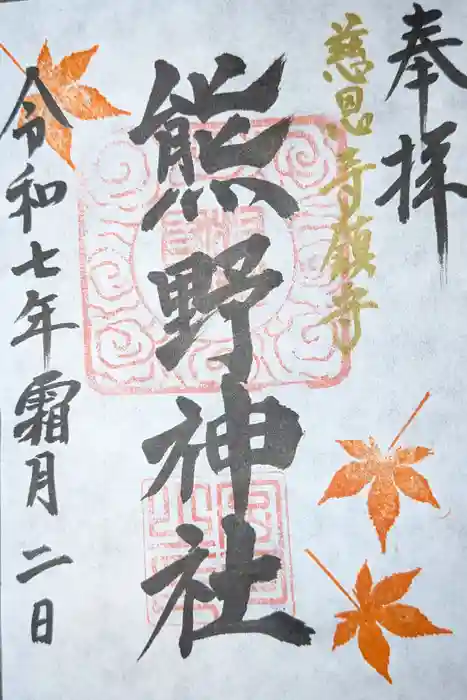 奉拝
慈恩寺願寺
熊野神社
令和七年霜月二日